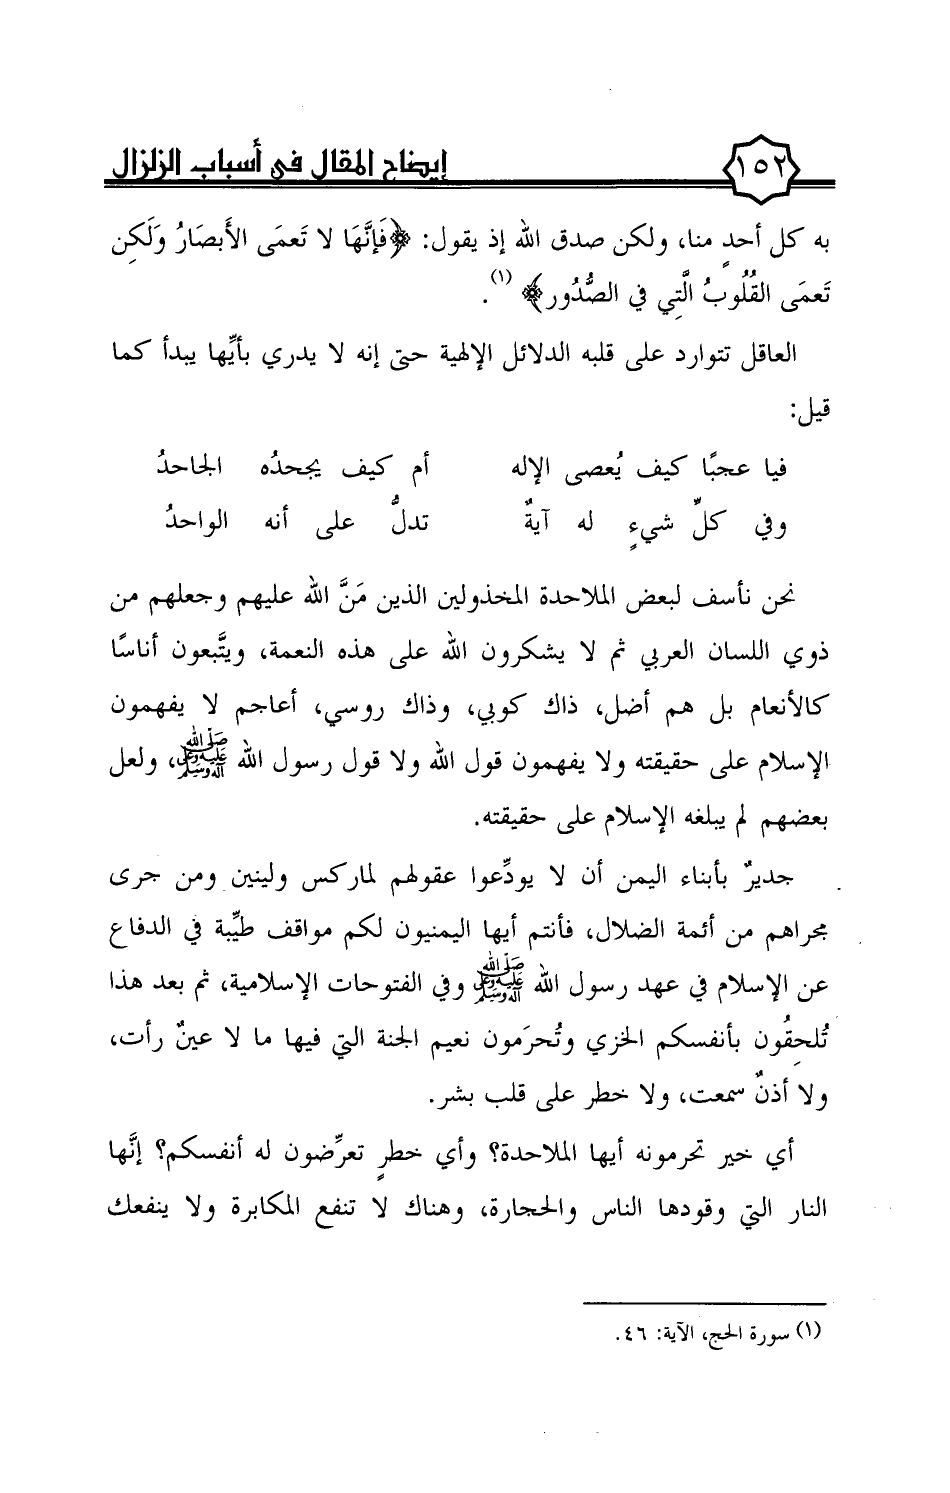 ١٥٢
إيضاح المقال في أسباب الزلزال
به كل أحدٍ منا، ولكن صدق الله إذ يقول: ﴿فَإِنَّهَا لا تَعمَى الأَبصَارُ وَلَكِن
تَعمَى القُلُوبُ الَّتِي في الصُّدُور﴾ (١).
العاقل تتوارد على قلبه الدلائل الإلهية حتى إنه لا يدري بأيِّها يبدأ كما
قيل:
فيا عجبًا كيف يُعصى الإله أم كيف يجحدُه الجاحدُ
وفي كلِّ شيءٍ له آيةٌ تدلُّ على أنه الواحدُ
نحن نأسف لبعض الملاحدة المخذولين الذين مَنَّ الله عليهم وجعلهم من
ذوي اللسان العربي ثم لا يشكرون الله على هذه النعمة، ويتَّبعون أناسًا
كالأنعام بل هم أضل، ذاك كوبي، وذاك روسي، أعاجم لا يفهمون
الإسلام على حقيقته ولا يفهمون قول الله ولا قول رسول الله صلى الله عليه وآله وسلم، ولعل
بعضهم لم يبلغه الإسلام على حقيقته.
جديرٌ بأبناء اليمن أن لا يودِّعوا عقولهم لماركس ولينين ومن جرى
مجراهم من أئمة الضلال، فأنتم أيها اليمنيون لكم مواقف طيِّبة في الدفاع
عن الإسلام في عهد رسول الله صلى الله عليه وآله وسلم وفي الفتوحات الإسلامية، ثم بعد هذا
تُلحِقُون بأنفسكم الخزي وتُحرَمون نعيم الجنة التي فيها ما لا عينٌ رأت،
ولا أذنٌ سمعت، ولا خطر على قلب بشر.
أي خير تحرمونه أيها الملاحدة؟ وأي خطرٍ تعرِّضون له أنفسكم؟ إنَّها
النار التي وقودها الناس والحجارة، وهناك لا تنفع المكابرة ولا ينفعك
(١) سورة الحج، الآية: ٤٦.